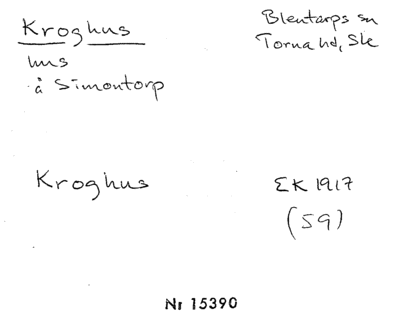 Kroghus
Blentarps sn
Torna hd, Sk
hus
å Simontorp
Kroghus
EK 1917
(59)
Nr 15390